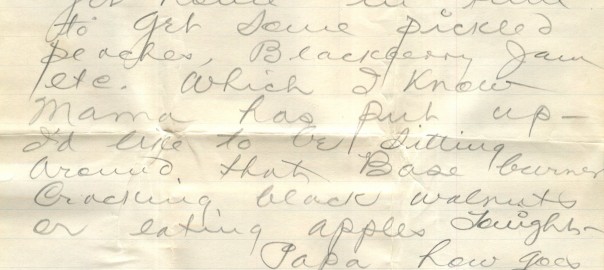 get home in time
to get some pickled
peaches, Blackberry Jam
etc. which I know
Mama has put up —
I'd like to be sitting
around that Base burner
Cracking black walnuts
or eating apples Tonight —
Papa how goes